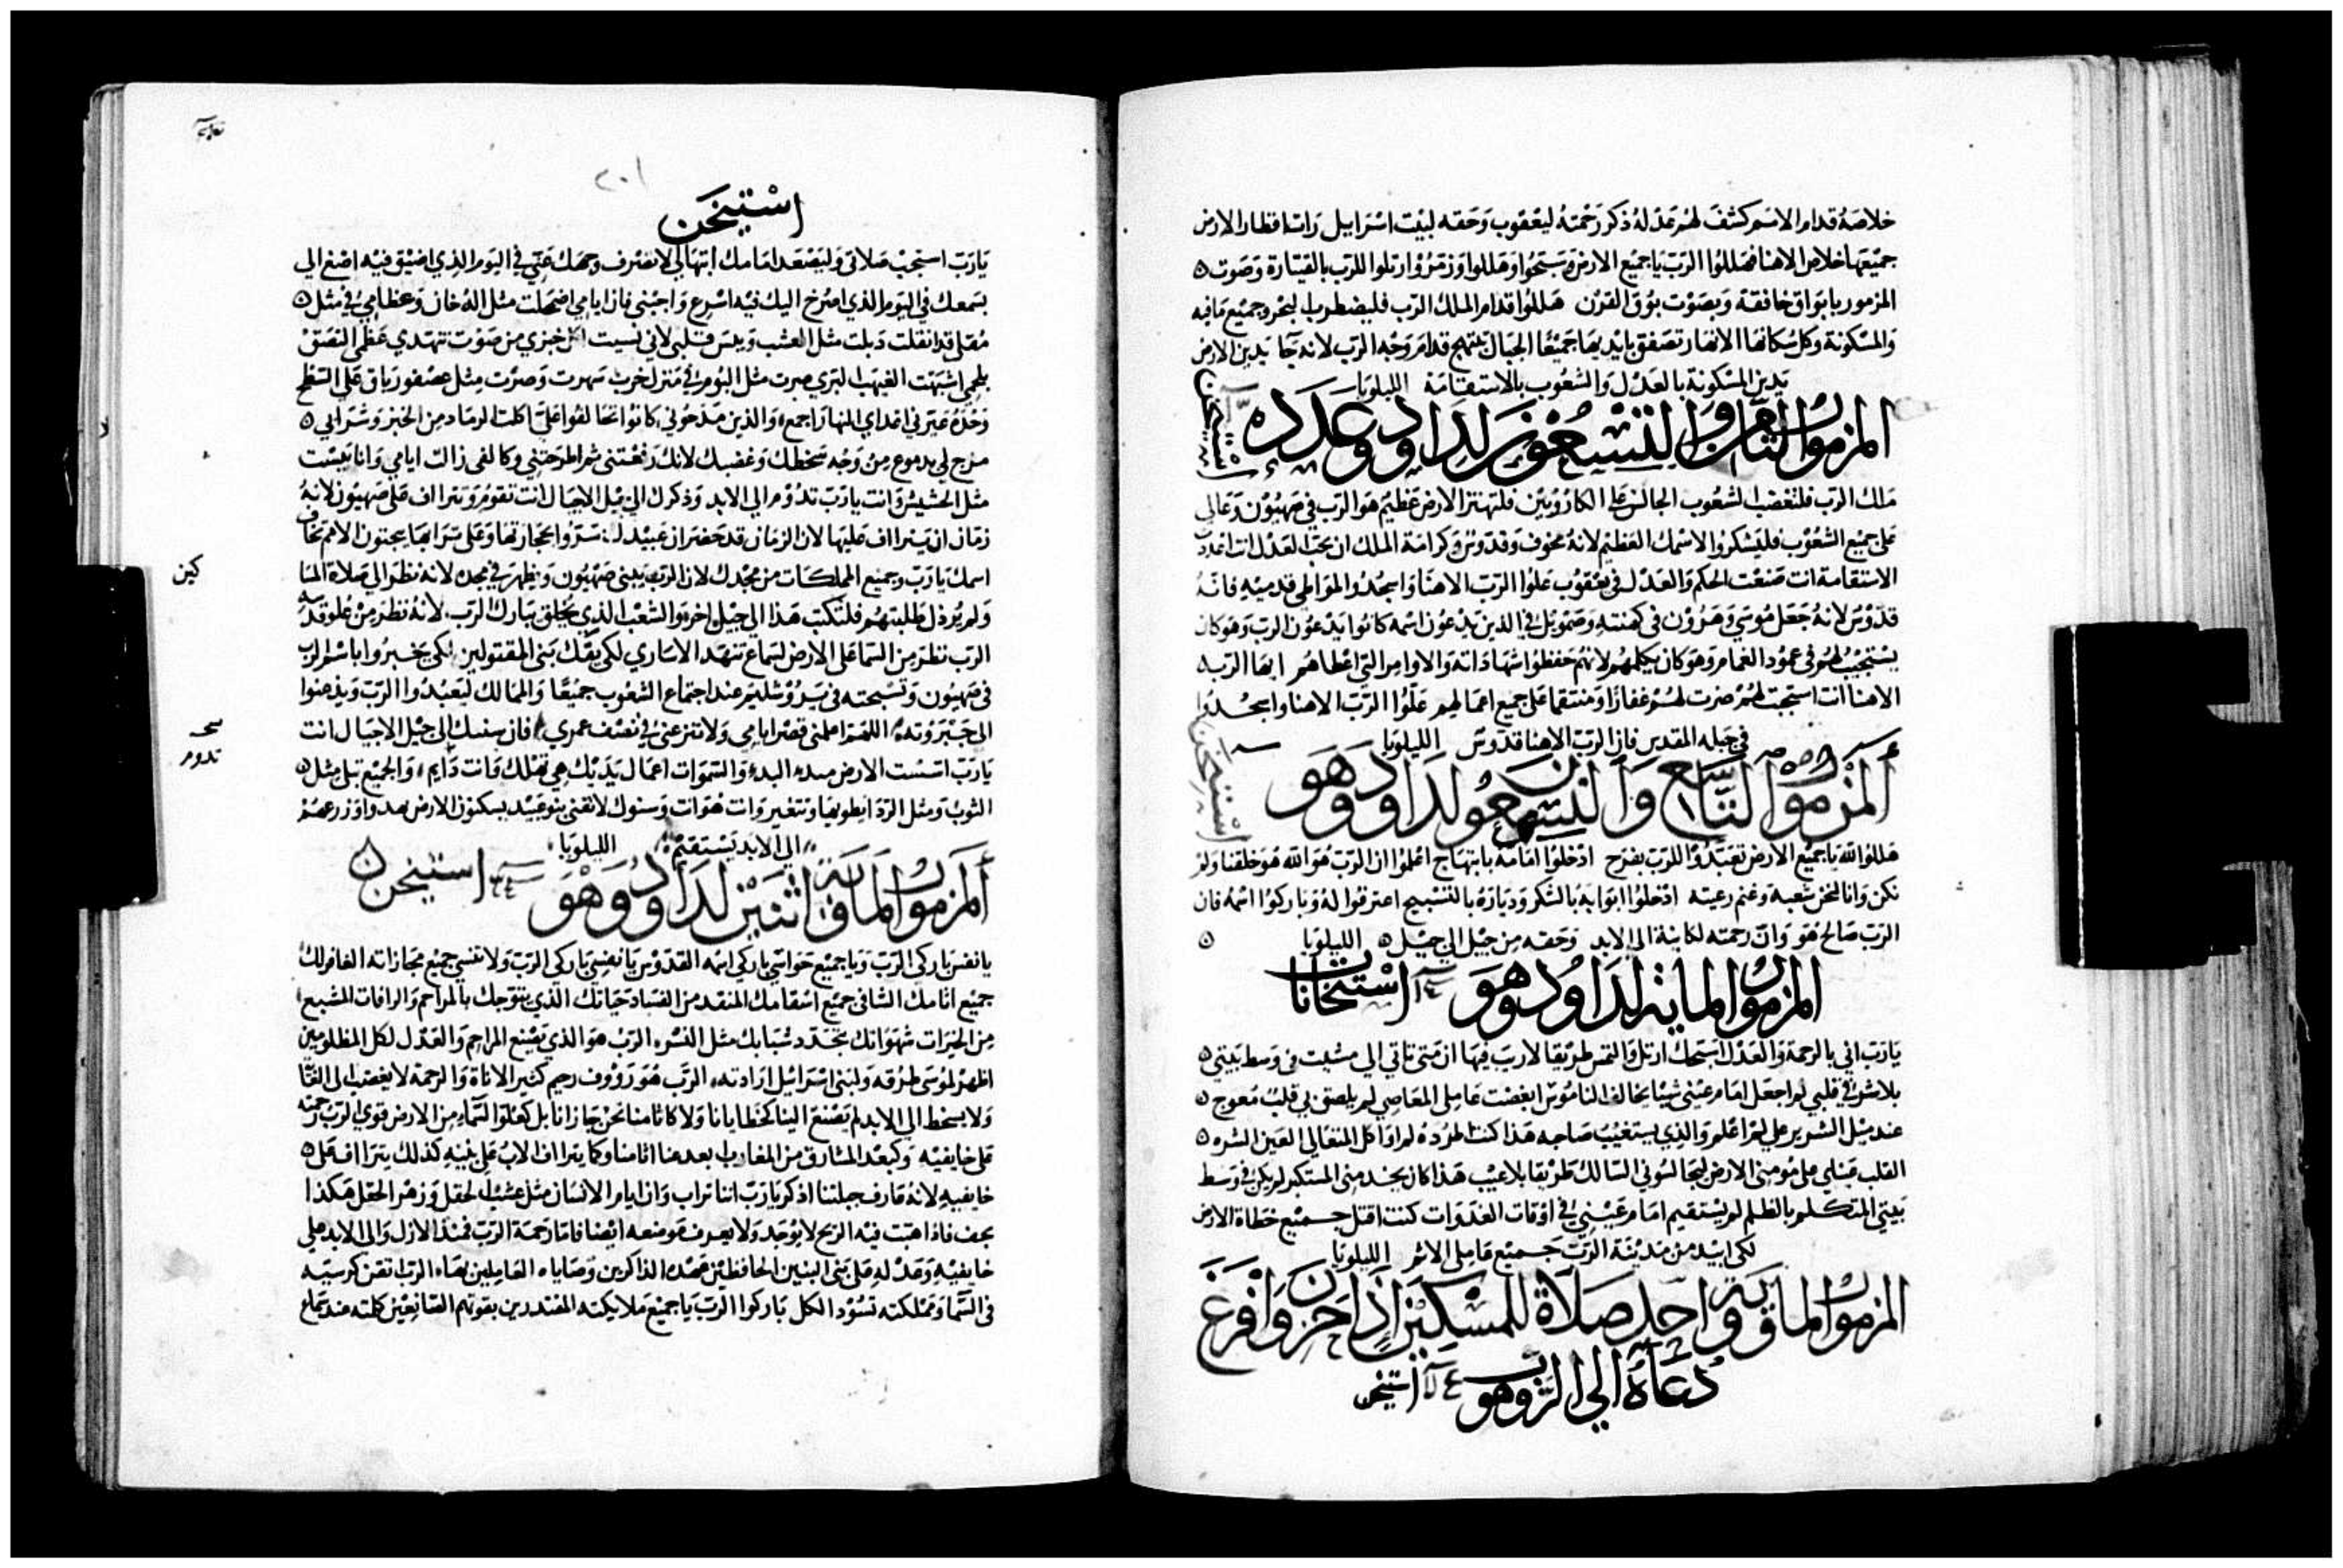 خلاصة قدام الامم كشف لهم عدله ذكر رحمته ليعقوب وحقه لبيت اسراييل رات اقطار الارض
جميعها خلاص الاهنا فهللوا الرب يا جميع الارض وسبحوا وهللوا وزمروا رتلوا للرب بالقيثارة وصوت
المزمور بابواق خافقة وبصوت بوق القرن هللوا قدام الملك الرب فليضطرب البحر وجميع ما فيه
والمسكونة وكل سكانها الانهار تصفق بايديها جميعا الجبال تبتهج قدام وجه الرب لانه جا يدين الارض
يدين المسكونة بالعدل والشعوب بالاستقامة الليلويا
المزمور الثامن والتسعون لداود وعدده
استيخن
ملك الرب فلتغضب الشعوب الجالس على الكاروبين فلتهتز الارض عظيم هو الرب في صهيون وعالي
على جميع الشعوب فليشكروا لاسمك العظيم لانه مخوف وقدوس وكرامة الملك ان يحب العدل انت اعددت
الاستقامة انت صنعت الحكم والعدل في يعقوب علوا الرب الاهنا واسجدوا لمواطي قدميه فانه
قدوس لانه جعل موسي وهرون في كهنته وصمويل في الذين يدعون اسمه كانوا يدعون الرب وهو كان
يستجيب لهم في عمود الغمام وهو كان يكلمهم لانهم حفظوا شهاداته والاوامر التي اعطاهم ايها الرب
الاهنا انت استجبت لهم صرت لهم غفارا ومنتقما على جميع اعمالهم علوا الرب الاهنا واسجدوا
في جبله المقدس فان الرب الاهنا قدوس الليلويا
المزمور التاسع والتسعون لداود وهو
استيخن
هللوا لله يا جميع الارض تعبدوا للرب بفرح ادخلوا امامه بابتهاج اعلموا ان الرب هو الله هو خلقنا ولم
نكن وانا لنحن شعبه وغنم رعيته ادخلوا ابوابه بالشكر ودياره بالتسبيح اعترفوا له وباركوا اسمه فان
الرب صالح هو وان رحمته لكاينة الى الابد وحقه من جيل الى جيل الليلويا
المزمور الماية لداود وهو استيخانات
يا رب اني بالرحمة والعدل اسبحك ارتل والتمس طريقا لا ريب فيها ان متي تاتي الي مشيت في وسط بيتي
بلا شر في قلبي لم اجعل امام عيني شيئا يخالف الناموس ابغضت عاملي المعاصي لم يلصق بي قلب معوج
عند ميل الشرير علي لم اعلم والذي يستغيب صاحبه هذا كنت اطرده لم اواكل المتعالي العين الشره
القلب عيناي على مومني الارض ليجالسوني السالك طريقا بلا عيب هذا كان يخدمني المستكبر لم يكن في وسط
بيتي المتكلم بالظلم لم يستقيم امام عيني في اوقات الغدوات كنت اقتل جميع خطاة الارض
لكي ابيد من مدينة الرب جميع عاملي الاثم الليلويا
المزمور الماية وواحد صلاة للمسكين اذا حزن وافرغ
دعاه الى الرب وهو استيخن
٢٠١
استيخن
يا رب استجب صلاتي وليصعد امامك ابتهالي لا تصرف وجهك عني في اليوم الذي اضيق فيه اصغ الي
بسمعك في اليوم الذي اصرخ اليك فيه اسرع واجبني فان ايامي اضمحلت مثل الدخان وعظامي في مثل
مقلى قد انقلت ذبلت مثل العشب ويبس قلبي لاني نسيت اكل خبزي من صوت تنهدي عظمي التصق
بلحمي اشبهت الغيهب البري صرت مثل البوم في منزل خرب سهرت وصرت مثل عصفور باق على السطح
وحده عيرني اعداي النهار اجمع والذين مدحوني كانوا تحالفوا علي اكلت الرماد من الخبز وشرابي
مزج لي بدموع من وجه سخطك وغضبك لانك رفعتني ثم اطرحتني وكالفي زالت ايامي وانا يبست
مثل الحشيش وانت يا رب تدوم الى الابد وذكرك الى جيل الاجيال انت تقوم وتتراف على صهيون لانه
زمان ان يتراف عليها لان الزمان قد حضر ان عبيدك سروا بحجارتها وعلى ترابها يحننون الامم تخاف
اسمك يا رب وجميع المملكات من مجدك لان الرب يبني صهيون ويظهر في مجده لانه نظر الي صلاة المتـ
كين
ولم يرذل طلبتهم فلتكتب هذا الى جيل اخر والشعب الذي يخلق يبارك الرب لانه نظر من علو قدسه
الرب نظر من السما على الارض لسماع تنهد الاساري لكي يفك بني المقتولين لكي يخبروا باسم الرب
في صهيون وتسبحته في يروشليم عند اجتماع الشعوب جميعا والممالك ليعبدوا الرب ويذعنوا
الى جبروته اللهم اعلمني قصر ايامي ولا تنزعني في نصف عمري فان سنيك الى جيل الاجيال انت
تدوم
يا رب اسست الارض منذ البدء والسموات اعمال يديك هي تهلك وانت دايم والجميع تبلى مثل
الثوب ومثل الردا يطويها وتتغير وانت هو انت وسنوك لا تفنى بنو عبيدك يسكنون الارض هدوا وزرعهم
الى الابد يستقيم الليلويا
المزمور الماية واثنين لداود وهو استيخن
يا نفس باركي الرب ويا جميع حواسي باركي اسمه القدوس يا نفسي باركي الرب ولا تنسي جميع مجازاته الغافر لك
جميع اثامك الشافي جميع اسقامك المنقذ من الفساد حياتك الذي يتوجك بالمراحم والرافات المشبع
من الخيرات شهواتك تجدد شبابك مثل النسر الرب هو الذي يصنع المراحم والعدل لكل المظلومين
اظهر لموسى طرقه ولبني اسراييل ارادته الرب هو رووف رحيم كثير الاناة والرحمة لا يغضب الى الغاية
ولا يسخط الى الابد لم يصنع الينا كخطايانا ولا كاثامنا نحن جازانا بل كعلو السماء من الارض قوى الرب رحمته
على خايفيه وكبعد المشارق من المغارب ابعد عنا اثامنا وكما يتراف الاب على بنيه كذلك يتراف على
خايفيه لانه عارف جبلتنا اذكر يا رب اننا تراب وان ايام الانسان مثل عشب الحقل وزهر الحقل هكذا
يجف فاذا هبت فيه الريح لا يوجد ولا يعرف موضعه ايضا فاما رحمة الرب فمنذ الازل والى الابد على
خايفيه وعدله على بني البنين الحافظين عهده الذاكرين وصاياه العاملين بها الرب اتقن كرسيه
في السما ومملكته تسود الكل باركوا الرب يا جميع ملايكته المقتدرين بقوتهم الصانعين كلمته عند سماع